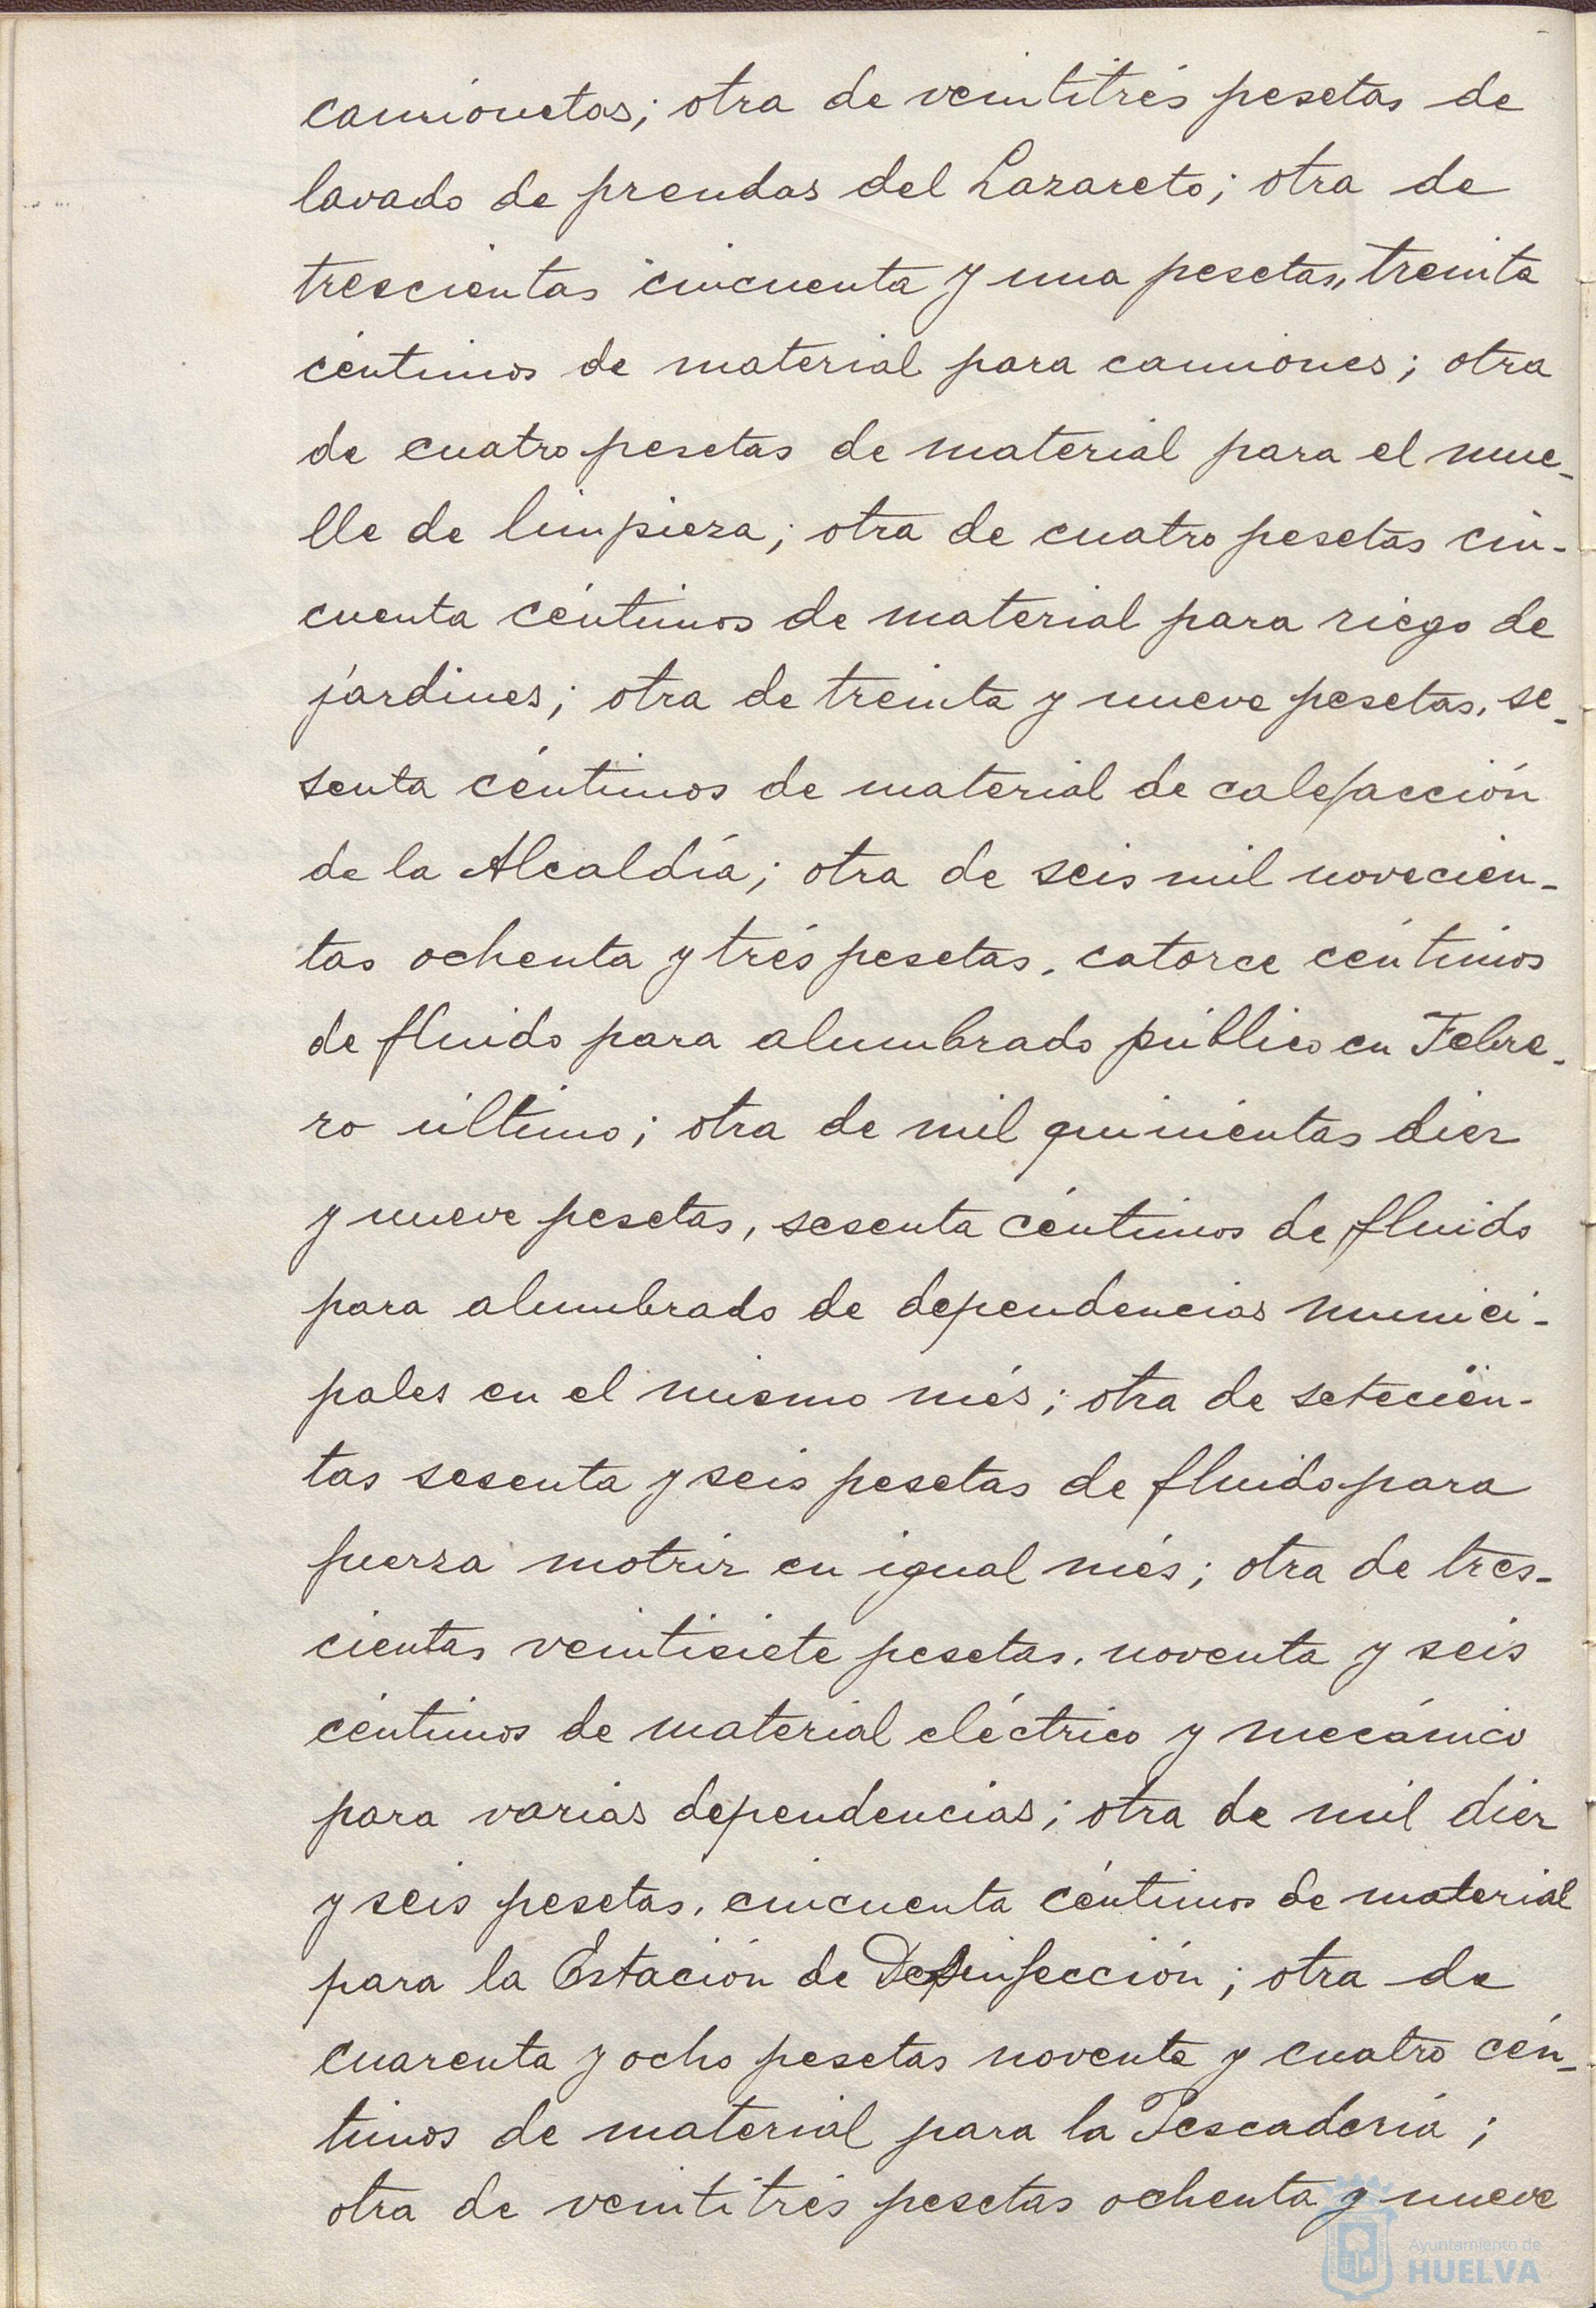 camionetas; otra de veintitrés pesetas de
lavado de prendas del Lazareto; otra de
trescientas cincuenta y una pesetas, treinta
céntimos de material para camiones; otra
de cuatro pesetas de material para el mue-
lle de limpieza; otra de cuatro pesetas cin-
cuenta céntimos de material para riego de
jardines; otra de treinta y nueve pesetas, se-
senta céntimos de material de calefacción
de la Alcaldía; otra de seis mil novecien-
tas ochenta y trés pesetas, catorce céntimos
de fluido para alumbrado público en Febre-
ro último; otra de mil quinientas diez
y nueve pesetas, sesenta céntimos de fluido
para alumbrado de dependencias munici-
pales en el mismo més; otra de setecien-
tas sesenta y seis pesetas de fluido para
fuerza motriz en igual més; otra de tres-
cientas veintisiete pesetas, noventa y seis
céntimos de material eléctrico y mecánico
para varias dependencias; otra de mil diez
y seis pesetas, cincuenta céntimos de material
para la Estación de Desinfección; otra de
cuarenta y ocho pesetas noventa y cuatro cén-
timos de material para la Pescadería;
otra de veintitrés pesetas ochenta y nueve
Ayuntamiento de
HUELVA